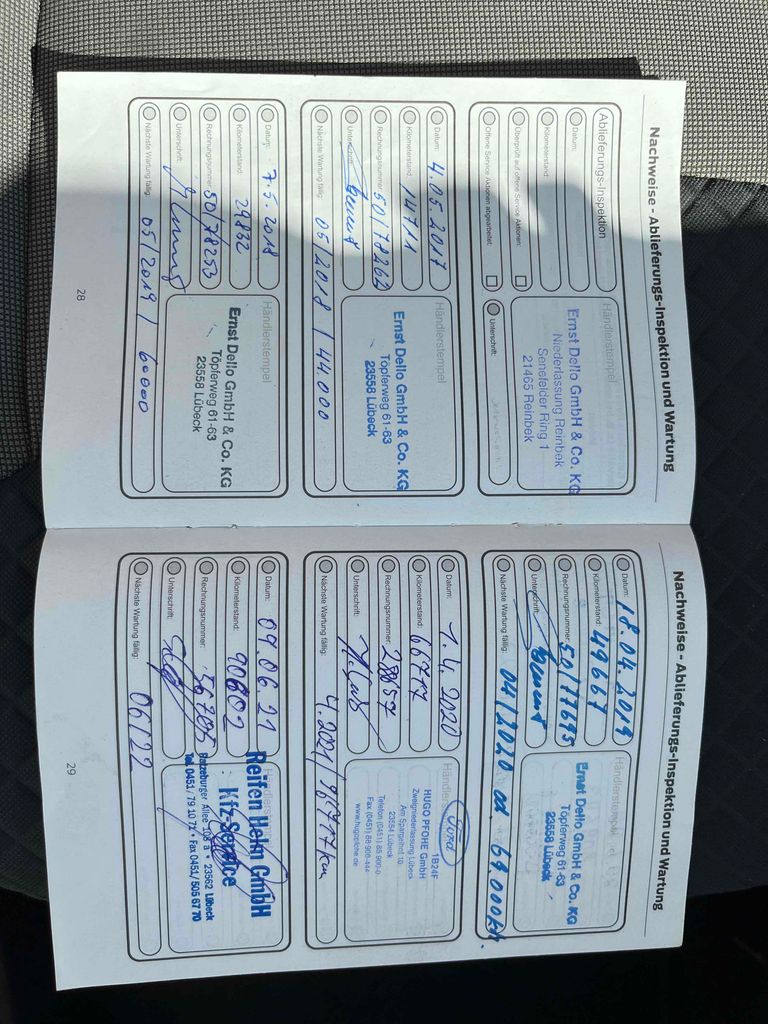 Nachweise - Ablieferungs-Inspektion und Wartung
Ablieferungs-Inspektion
Datum:
Kilometerstand:
Überprüft auf offene Service Aktionen:
Offene Service Aktionen abgearbeitet:
Händlerstempel
Ernst Dello GmbH & Co. KG
Niederlassung Reinbek
Senefelder Ring 1
21465 Reinbek
Unterschrift:
Datum: 4.05.2017
Kilometerstand: 14711
Rechnungsnummer: 50/78262
Unterschrift:
Nächste Wartung fällig: 05/2018 / 44.000
Händlerstempel
Ernst Dello GmbH & Co. KG
Töpferweg 61-63
23558 Lübeck
Datum: 7.5.2018
Kilometerstand: 29832
Rechnungsnummer: 50/78233
Unterschrift:
Nächste Wartung fällig: 05/2019 / 60000
Händlerstempel
Ernst Dello GmbH & Co. KG
Töpferweg 61-63
23558 Lübeck
28
Nachweise - Ablieferungs-Inspektion und Wartung
Datum: 18.04.2019
Kilometerstand: 49667
Rechnungsnummer: 50/77695
Unterschrift:
Nächste Wartung fällig: 04/2020 69.000
Händlerstempel
Ernst Dello GmbH & Co. KG
Töpferweg 61-63
23558 Lübeck
Datum: 1.4.2020
Kilometerstand: 66717
Rechnungsnummer: 28057
Unterschrift:
Nächste Wartung fällig: 4.2021/ 86717km
Ford
1B24F
HUGO PFOHE GmbH
Zweigniederlassung Lübeck
Am Spargelhof 10
23554 Lübeck
www.hugopfohe.de
Datum: 09.06.21
Kilometerstand: 90602
Rechnungsnummer: 56705
Unterschrift:
Nächste Wartung fällig: 06/22
Reifen Helm GmbH
Kfz-Service
Ratzeburger Allee 108 a • 23562 Lübeck
Tel. 0451/ 79 10 71 • Fax 0451/ 505 67 70
29